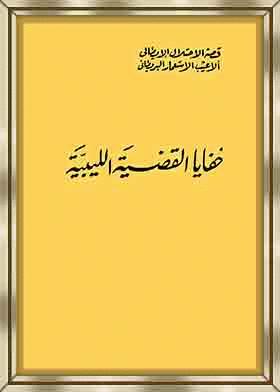 قصة الاحتلال الايطالي
ألاعيب الاستعمار البريطاني
خفايا القضية الليبيّة